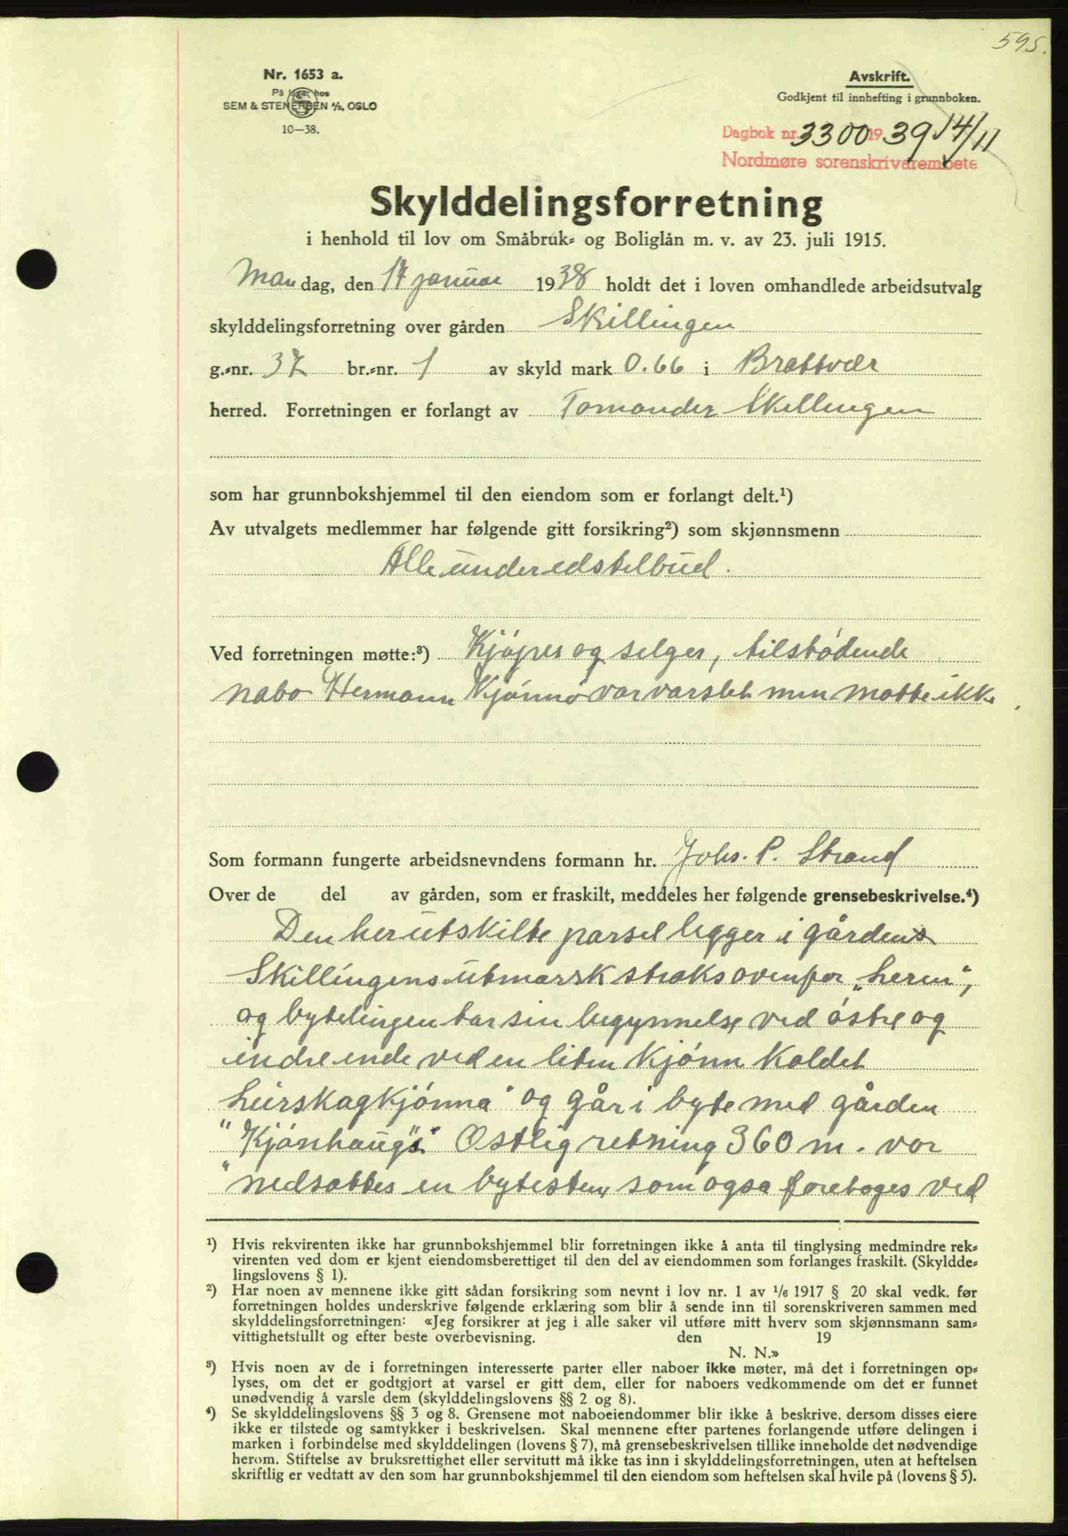 595.
Nr. 1653 a.
På lager hos
SEM & STENERSEN A/S, OSLO
10—38.
Avskrift.
Godkjent til innhefting i grunnboken.
Dagbok nr. 3300 1939 14/11
Nordmøre sorenskriverembete
Skylddelingsforretning
i henhold til lov om Småbruk- og Boliglån m. v. av 23. juli 1915.
Mandag, den 17 januar 1938 holdt det i loven omhandlede arbeidsutvalg
skylddelingsforretning over gården Skillingen
g.-nr. 37 br.-nr. 1 av skyld mark 0.66 i Brattvær
herred. Forretningen er forlangt av Tomander Skillingen
som har grunnbokshjemmel til den eiendom som er forlangt delt.¹)
Av utvalgets medlemmer har følgende gitt forsikring²) som skjønnsmenn
Alle under edstilbud.
Ved forretningen møtte:³) Kjøper og selger, tilstødende
nabo Hermann Kjønnø var varslet men møtte ikke.
Som formann fungerte arbeidsnevndens formann hr. Johs. P. Strand
Over de del av gården, som er fraskilt, meddeles her følgende grensebeskrivelse.⁴)
Den her utskilte parsel ligger i gårdens
Skillingens utmark straks ovenfor
og bytelingen tar sin begynnelse ved østre og
indre ende ved en liten Kjønn Kaldet
Leirskagkjønna" og går i byte med gården
"Kjønhaug" i Østlig retning 360 m. vor
"nedsattes en bytesten, som også foretages ved
¹) Hvis rekvirenten ikke har grunnbokshjemmel blir forretningen ikke å anta til tinglysing medmindre rek-
virenten ved dom er kjent eiendomsberettiget til den del av eiendommen som forlanges fraskilt. (Skyldde-
lingslovens § 1).
²) Har noen av mennene ikke gitt sådan forsikring som nevnt i lov nr. 1 av 1/6 1917 § 20 skal vedk. før
forretningen holdes underskrive følgende erklæring som blir å sende inn til sorenskriveren sammen med
skylddelingsforretningen: «Jeg forsikrer at jeg i alle saker vil utføre mitt hverv som skjønnsmann sam-
vittighetsfullt og efter beste overbevisning. den 19
N. N.»
³) Hvis noen av de i forretningen interesserte parter eller naboer ikke møter, må det i forretningen op-
lyses, om det er godtgjort at varsel er gitt dem, eller for naboers vedkommende om det er funnet
unødvendig å varsle dem (skylddelingslovens §§ 2 og 8).
⁴) Se skylddelingslovens §§ 3 og 8. Grensene mot naboeiendommer blir ikke å beskrive, dersom disses eiere
ikke er tilstede og samtykker i beskrivelsen. Skal mennene efter partenes forlangende utføre delingen i
marken i forbindelse med skylddelingen (lovens § 7), må grensebeskrivelsen tillike inneholde det nødvendige
herom. Stiftelse av bruksrettighet eller servitutt må ikke tas inn i skylddelingsforretningen, uten at heftelsen
skriftlig er vedtatt av den som har grunnbokshjemmel til den eiendom som heftelsen skal hvile på (lovens § 5).